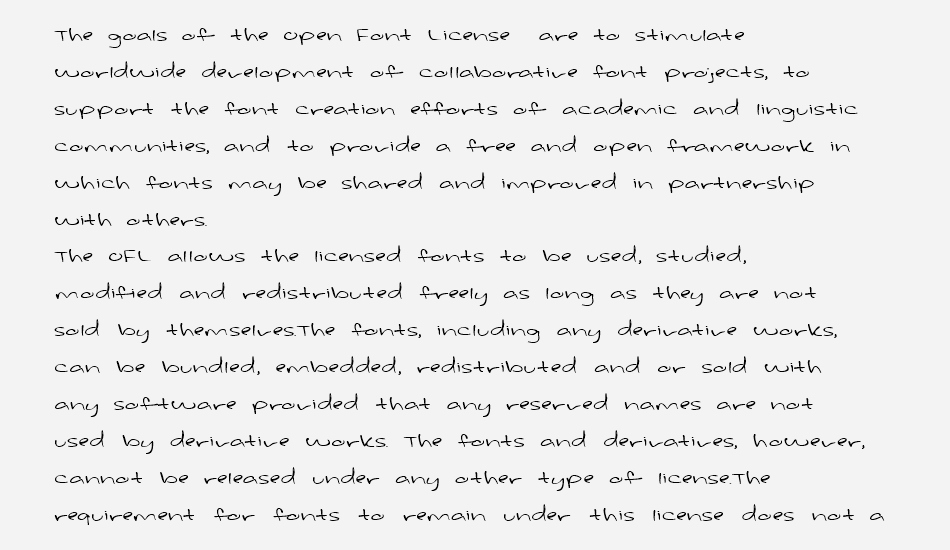 The goals of the Open Font License are to stimulate
worldwide development of collaborative font projects, to
support the font creation efforts of academic and linguistic
communities, and to provide a free and open framework in
which fonts may be shared and improved in partnership
with others.
The OFL allows the licensed fonts to be used, studied,
modified and redistributed freely as long as they are not
sold by themselves.The fonts, including any derivative works,
can be bundled, embedded, redistributed and or sold with
any software provided that any reserved names are not
used by derivative works. The fonts and derivatives, however,
cannot be released under any other type of license.The
requirement for fonts to remain under this license does not a